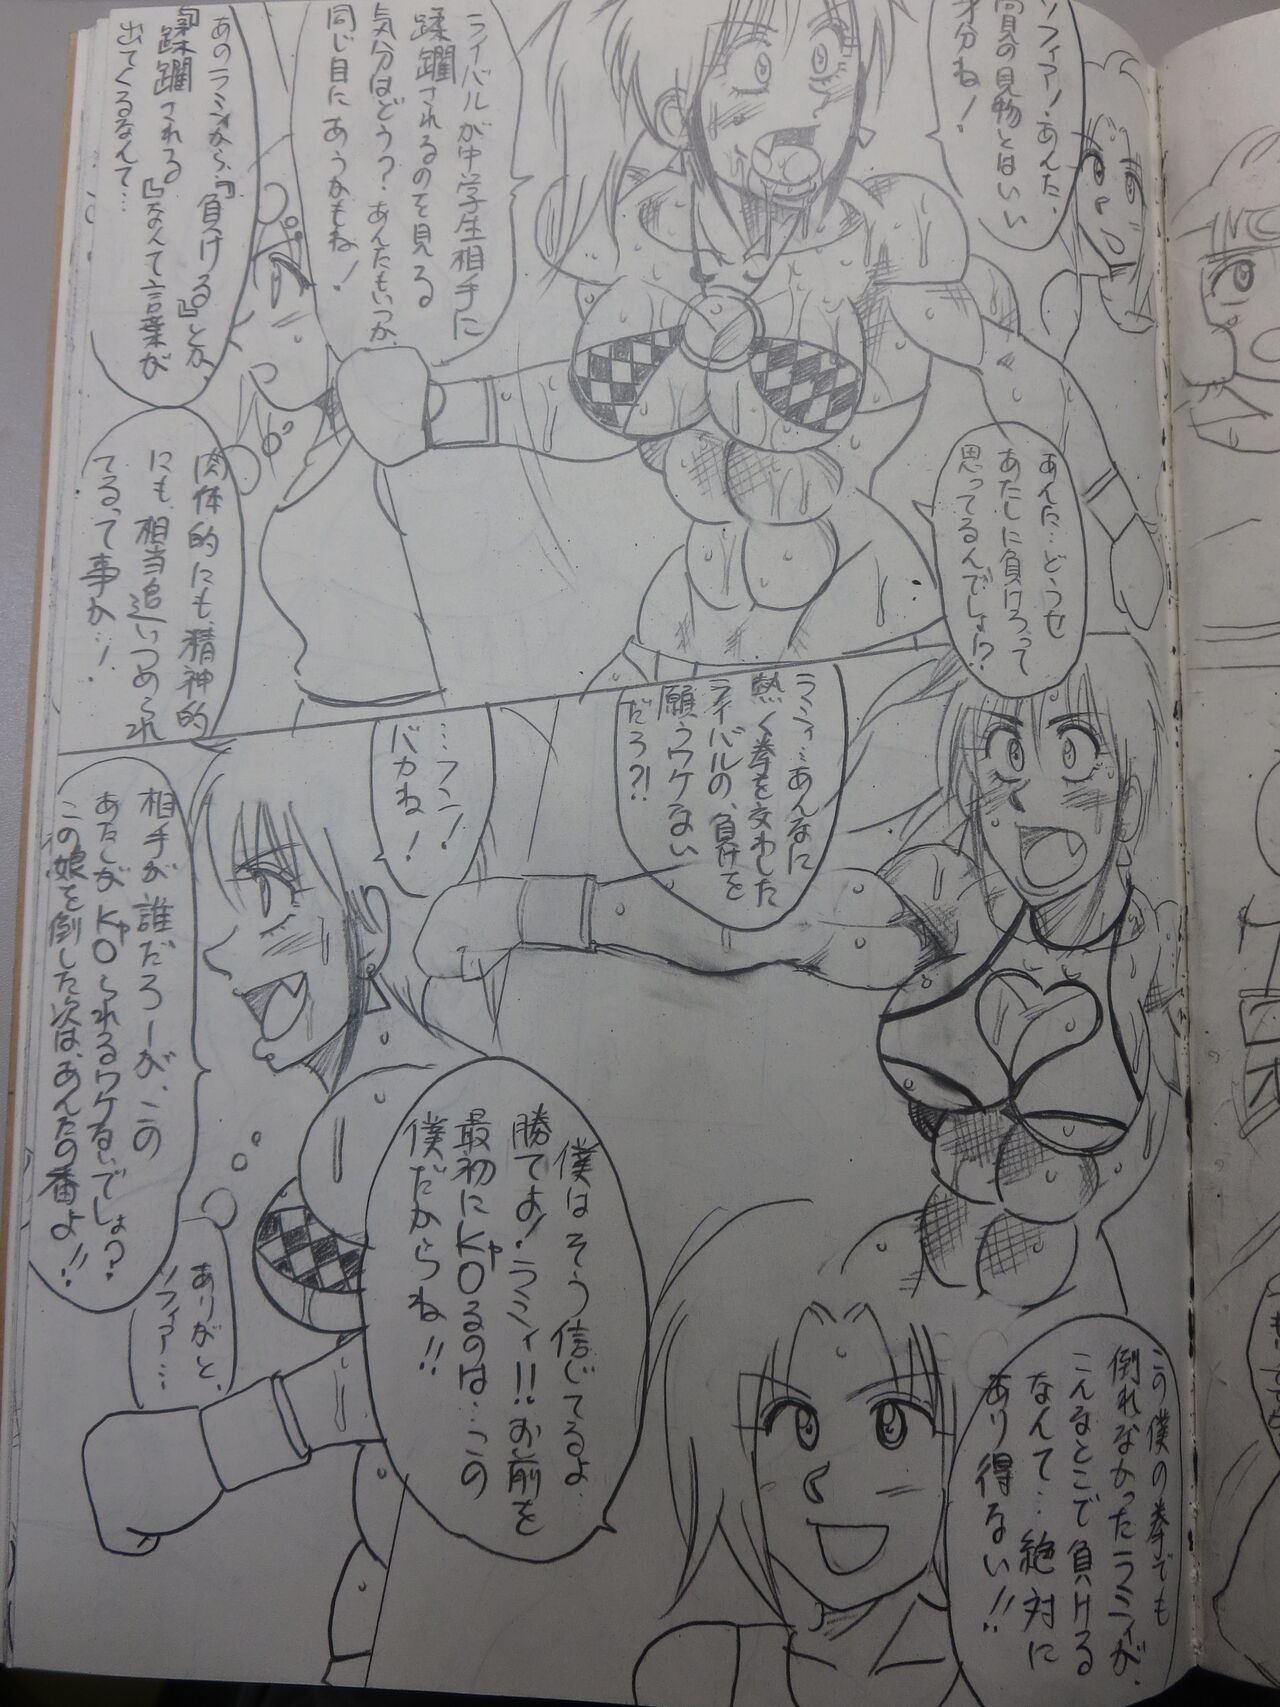 ソフィア!あんた、
高見の見物とはいい
身分ね!
ライバルが中学生相手に
蹂躙されるのを見る
気分はどう?あんたもいつか、
同じ目にあうかもね!
あのラミィから、『負ける』とか、
『蹂躙される』なんて言葉が
出てくるなんて…
肉体的にも、精神的
にも、相当追いつめられ
てるって事か…!
あんた…どうせ
あたしに負けろって
思ってるんでしょ!?
ラミィ…あんなに
熱く拳を交わした
ライバルの、負けを
願うワケない
だろ?!
…フン!
バカね!
相手が誰だろーが、この
あたしがKOられるワケないでしょ?
この娘を倒した次は、あんたの番よ!!
ありがと、
ソフィア…
僕はそう信じてるよ…
勝てよ!ラミィ!!お前を
最初にKOるのは…この
僕だからね!!
この僕の拳でも
倒れなかったラミィが、
こんなとこで負ける
なんて…絶対に
あり得ない!!